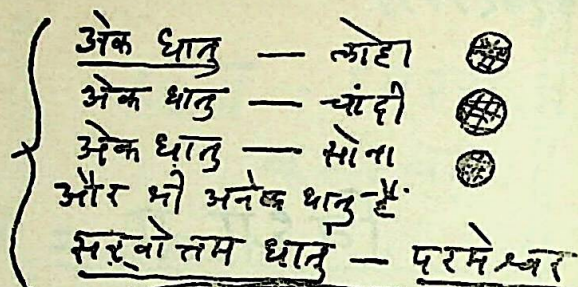 अेक धातु — लोहा
अेक धातु — चांदी
अेक धातु — सोना
और भी अनेक धातु हैं.
सर्वोत्तम धातु — परमेश्वर